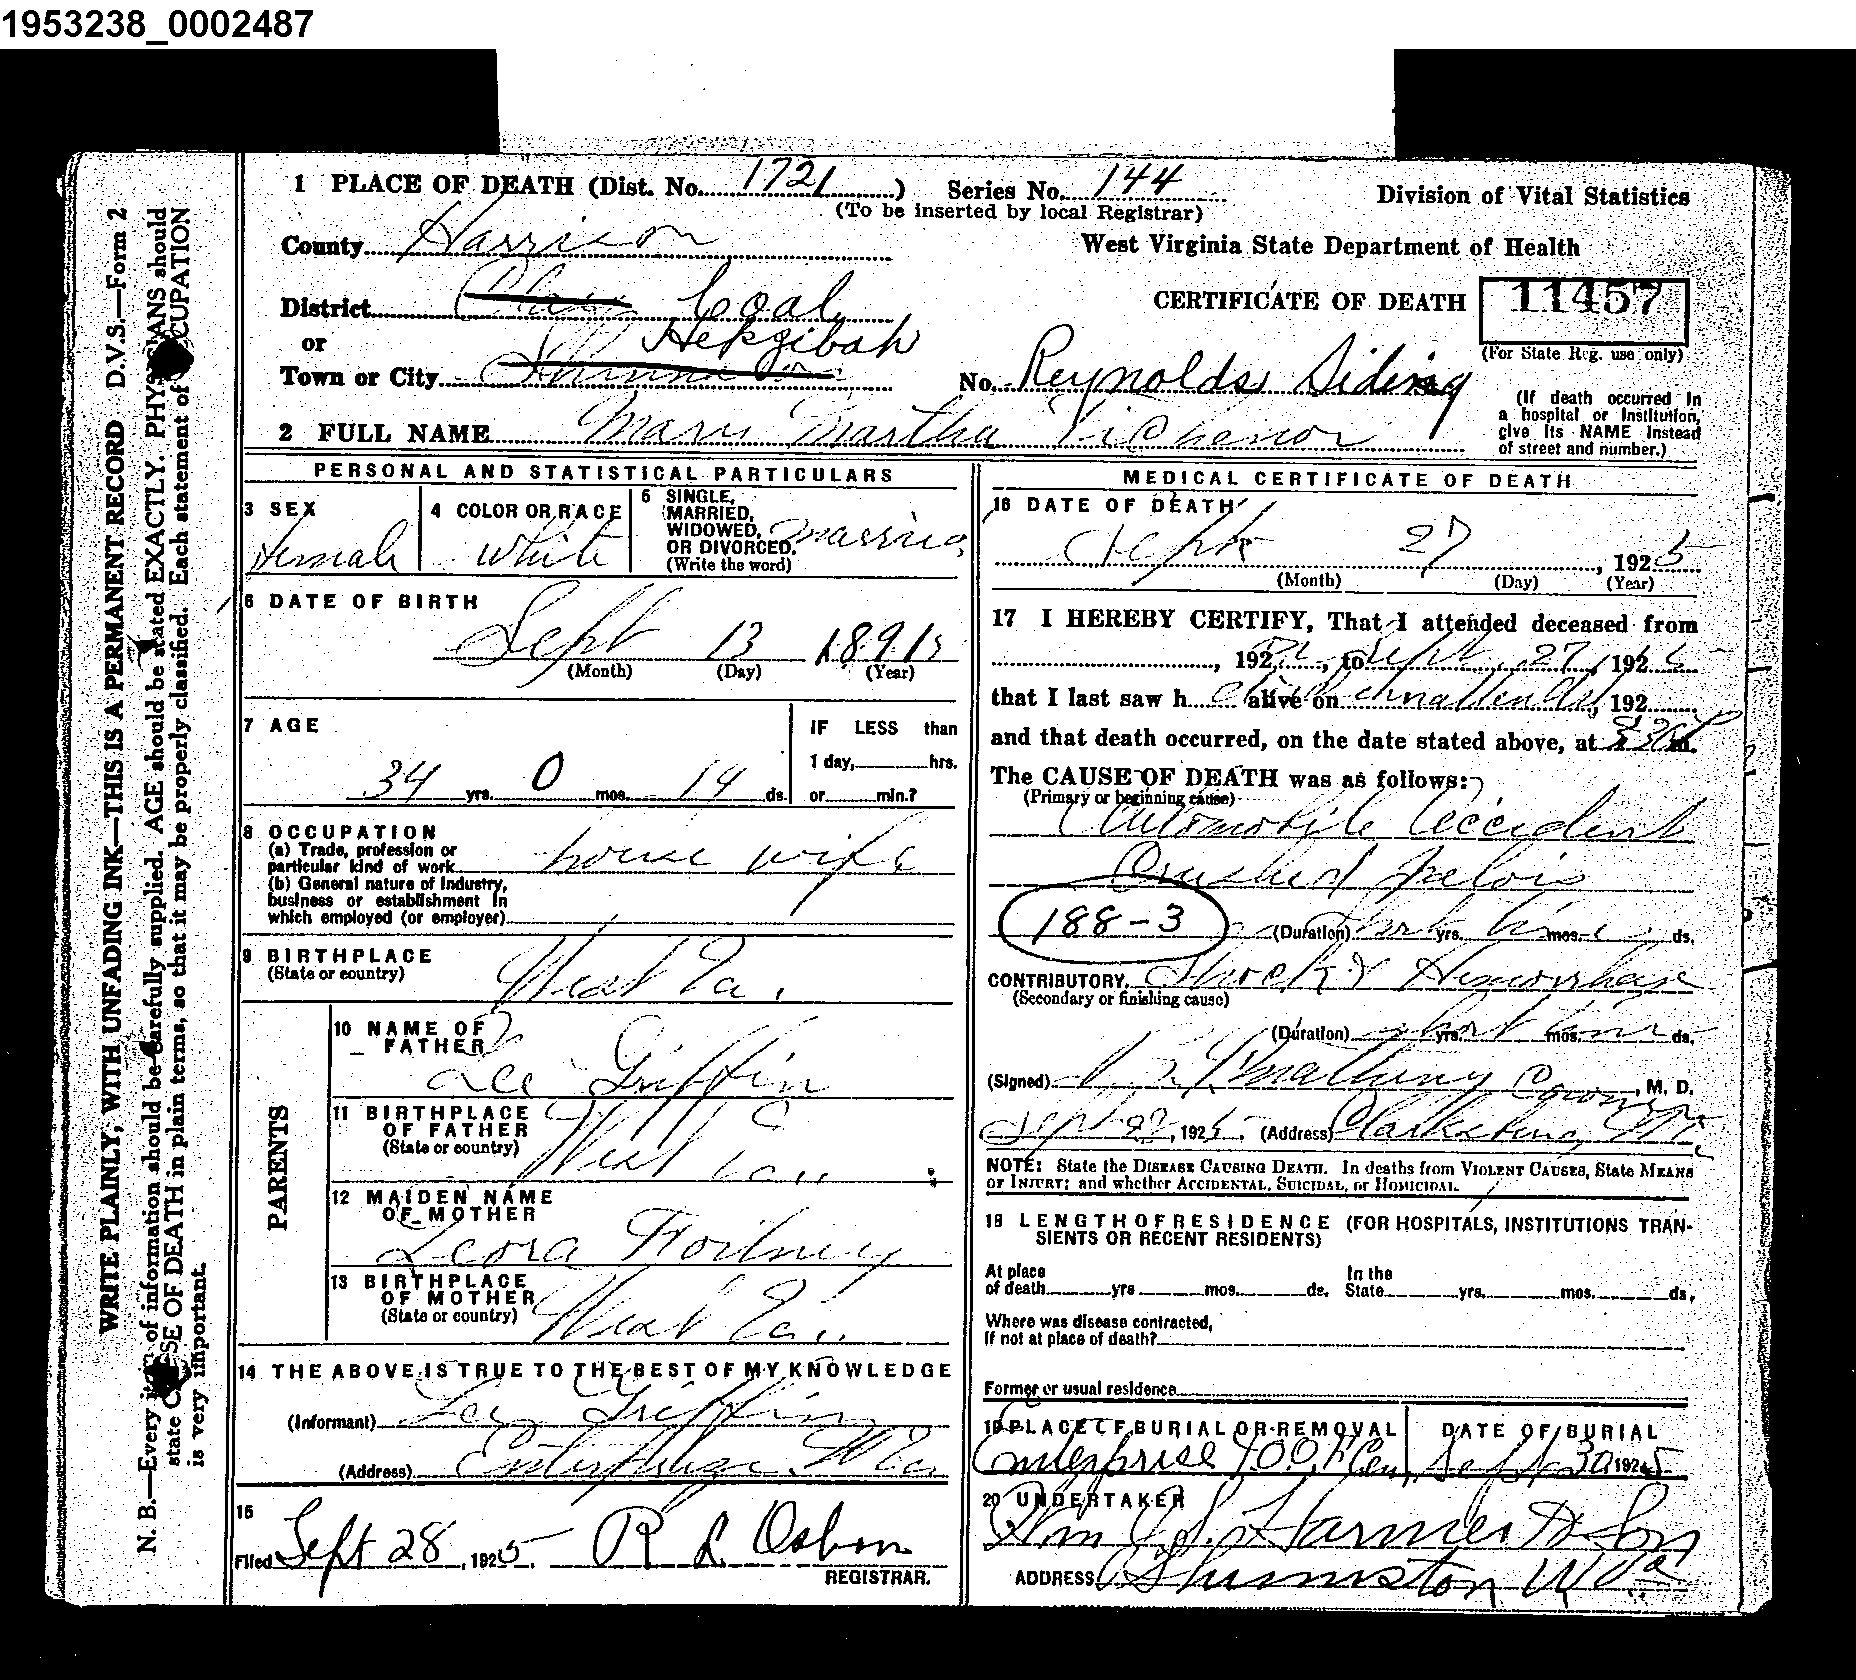 1953238_0002487
1 PLACE OF DEATH (Dist. No. 1721 ) Series No. 144 Division of Vital Statistics
(To be inserted by local Registrar)
County Harrison West Virginia State Department of Health
District Clay Coal CERTIFICATE OF DEATH 11457
or Hepzibah (For State Reg. use only)
Town or City Shinnston No. Reynolds Siding
(If death occurred in a hospital or Institution, give its NAME instead of street and number.)
2 FULL NAME Mary Martha Vichenor
PERSONAL AND STATISTICAL PARTICULARS
3 SEX
Female
4 COLOR OR RACE
White
5 SINGLE, MARRIED, WIDOWED, OR DIVORCED. (Write the word)
married
6 DATE OF BIRTH
Sept 13 1891
(Month) (Day) (Year)
7 AGE
34 yrs. 0 mos. 14 ds.
IF LESS than
1 day, hrs.
or min.?
8 OCCUPATION
(a) Trade, profession or
particular kind of work house wife
(b) General nature of Industry,
business or establishment in
which employed (or employer)
9 BIRTHPLACE
(State or country) West Va.
PARENTS
10 NAME OF FATHER
Lee Griffin
11 BIRTHPLACE OF FATHER
(State or country) West Va.
12 MAIDEN NAME OF MOTHER
Leora Fortney
13 BIRTHPLACE OF MOTHER
(State or country) West Va.
14 THE ABOVE IS TRUE TO THE BEST OF MY KNOWLEDGE
(Informant) Lee Griffin
(Address) Enterprise W Va
15
Filed Sept 28, 1925. R L Osborn
REGISTRAR.
MEDICAL CERTIFICATE OF DEATH
16 DATE OF DEATH
Sept 27, 1925
(Month) (Day) (Year)
17 I HEREBY CERTIFY, That I attended deceased from
, 192 , to Sept 27, 1925
that I last saw h alive on , 192
and that death occurred, on the date stated above, at m.
The CAUSE OF DEATH was as follows:
(Primary or beginning cause)
Automobile Accident
Crushed Pelvis
188-3 (Duration) short yrs. time mos. ds.
CONTRIBUTORY. Shock & Hemorrhage
(Secondary or finishing cause)
(Duration) short yrs. time mos. ds.
(Signed) Matheny Coroner, M. D.
Sept 27, 1925. (Address) Clarksburg, W.Va.
NOTE: State the DISEASE CAUSING DEATH. In deaths from VIOLENT CAUSES, State MEANS
OF INJURY; and whether ACCIDENTAL, SUICIDAL, or HOMICIDAL.
18 LENGTH OF RESIDENCE (FOR HOSPITALS, INSTITUTIONS TRAN-
SIENTS OR RECENT RESIDENTS)
At place of death yrs mos. ds. In the State yrs. mos. ds,
Where was disease contracted,
if not at place of death?
Former or usual residence
19 PLACE OF BURIAL OR REMOVAL
Enterprise I.O.O.F. Cem.
DATE OF BURIAL
Sept 30 1925
20 UNDERTAKER
Harmer & Son
ADDRESS Shinnston W Va
WRITE PLAINLY, WITH UNFADING INK—THIS IS A PERMANENT RECORD D.V.S.—Form 2
N. B.—Every item of information should be carefully supplied. AGE should be stated EXACTLY. PHYSICIANS should
state CAUSE OF DEATH in plain terms, so that it may be properly classified. Each statement of OCCUPATION
is very important.